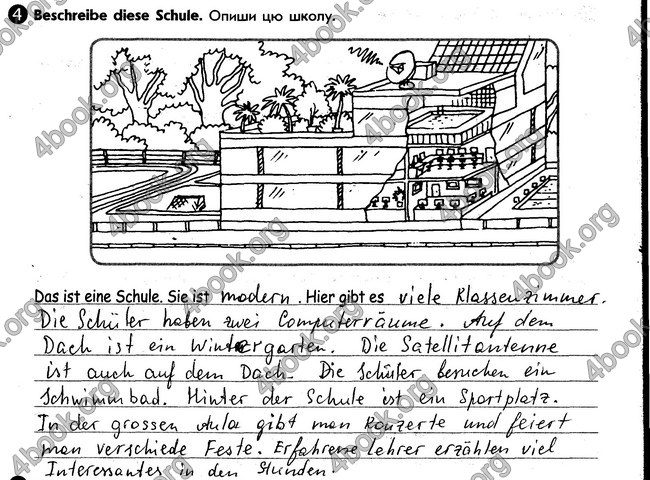 4 Beschreibe diese Schule. Опиши цю школу.
Das ist eine Schule. Sie ist modern. Hier gibt es viele Klassenzimmer.
Die Schüler haben zwei Computerräume. Auf dem
Dach ist ein Wintergarten. Die Satellitantenne
ist auch auf dem Dach. Die Schüler besuchen ein
Schwimmbad. Hinter der Schule ist ein Sportplatz.
In der grossen Aula gibt man Konzerte und feiert
man verschiede Feste. Erfahrene Lehrer erzählen viel
Interessantes in den Stunden.
4book.org